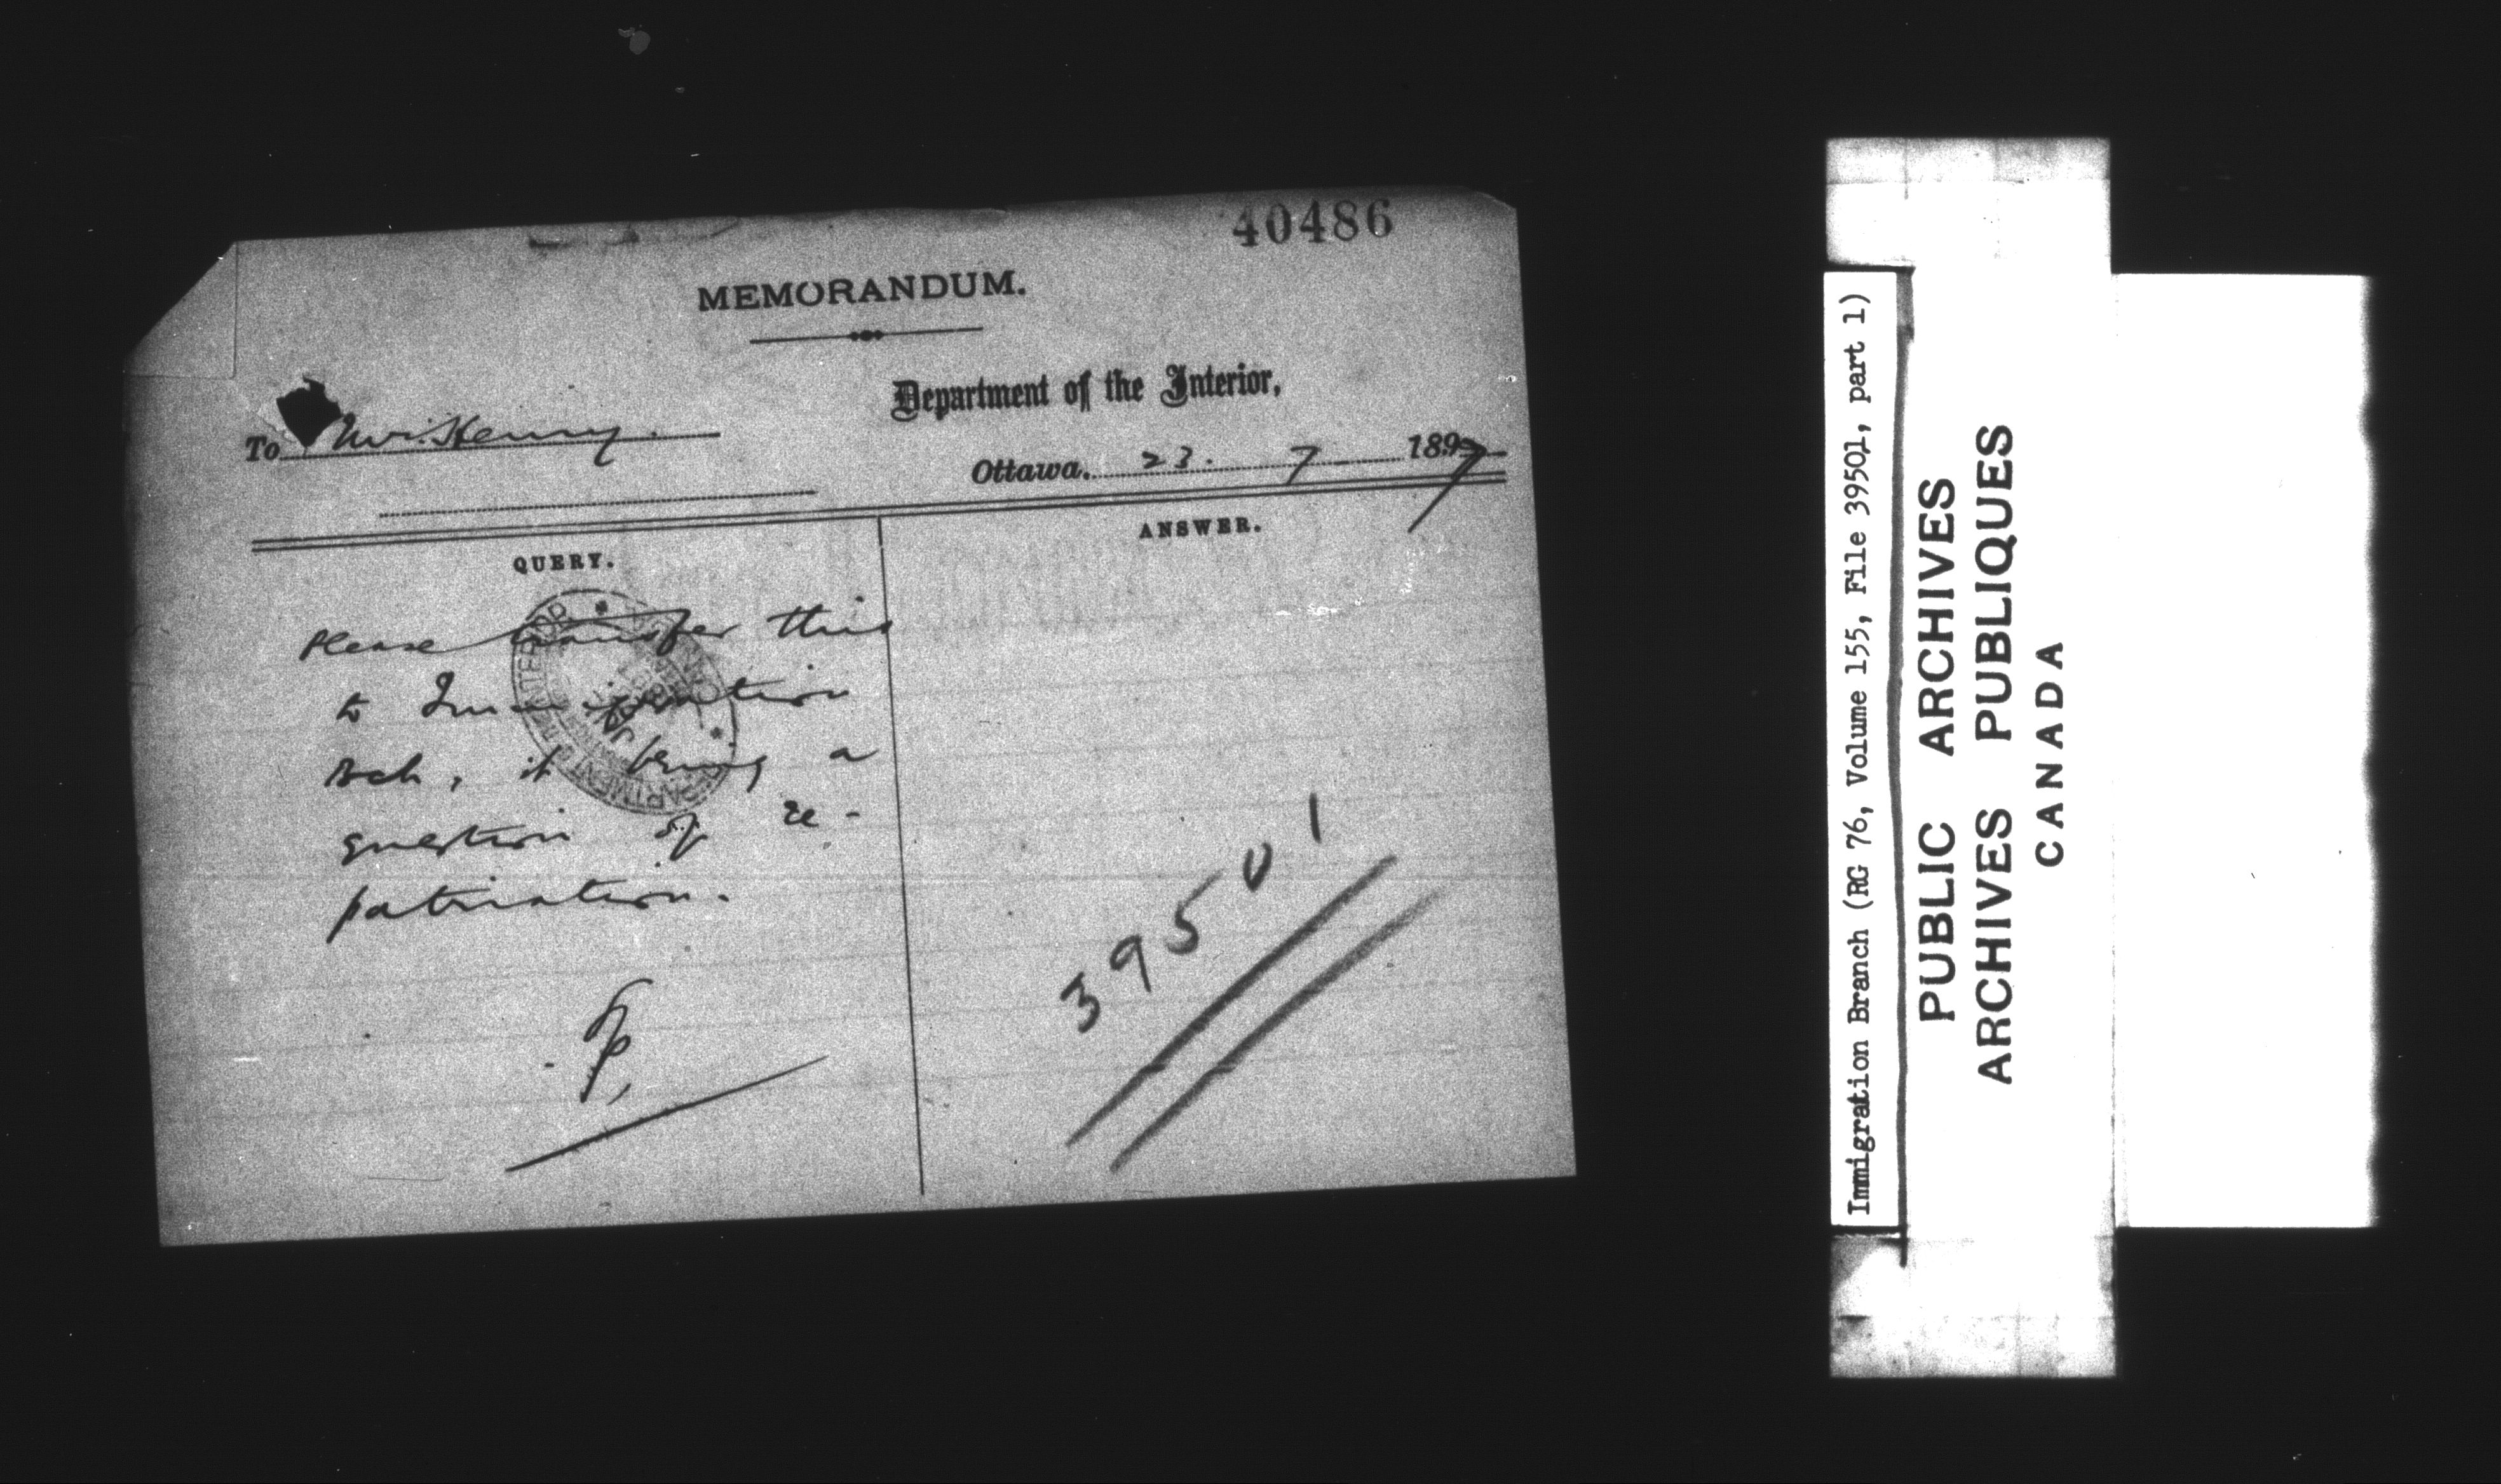 40486
MEMORANDUM.
Department of the Interior,
To Mr. Henry.
Ottawa. 23. 7 1897
QUERY.
ANSWER.
Please transfer this
to Immigration
Bch, it being a
question of re-
patriation.
39501
Immigration Branch (RG 76, Volume 155, File 39501, part 1)
PUBLIC ARCHIVES
ARCHIVES PUBLIQUES
CANADA